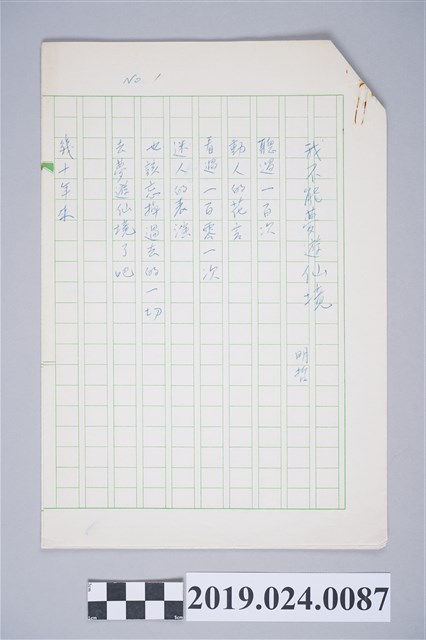 No 1
我不能夢遊仙境
明哲
聽過一百次
動人的花言
看過一百零一次
迷人的表演
也該忘掉過去的一切
去夢遊仙境了吧
幾十年來
1cm
5cm
2019.024.0087